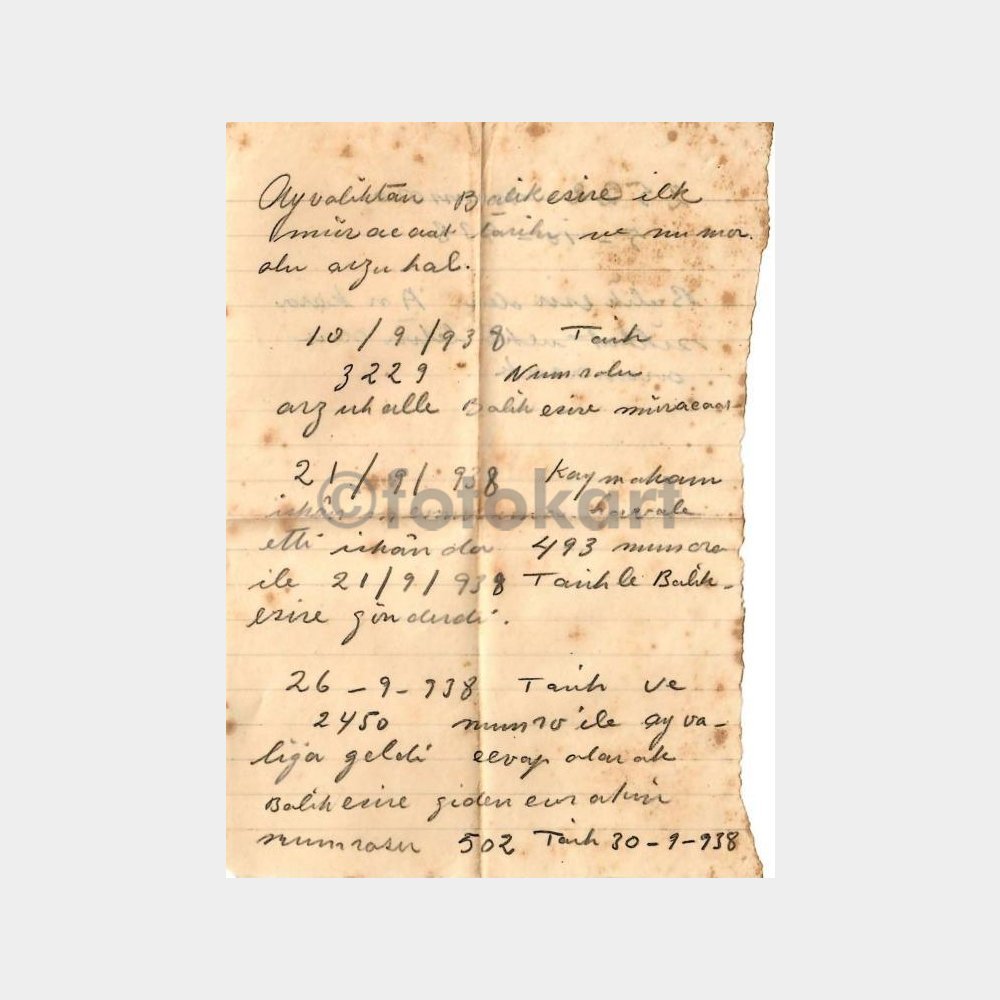 Ayvalıktan Balıkesire ilk
müracaat tarihi ve numor.
olu arzuhal.
10/9/938 Tarih
3229 Numrolu
arzuhalle Balıkesire müracaat
21/9/938 Kaymakam
iskân havale
etti iskânda 493 numora
ile 21/9/938 Tarihle Balık-
esire gönderdi.
26-9-938 Tarih ve
2450 numro ile ayva-
liğa geldi cevap olarak
Balıkesire giden evrakın
numrosu 502 Tarih 30-9-938
©fotokart